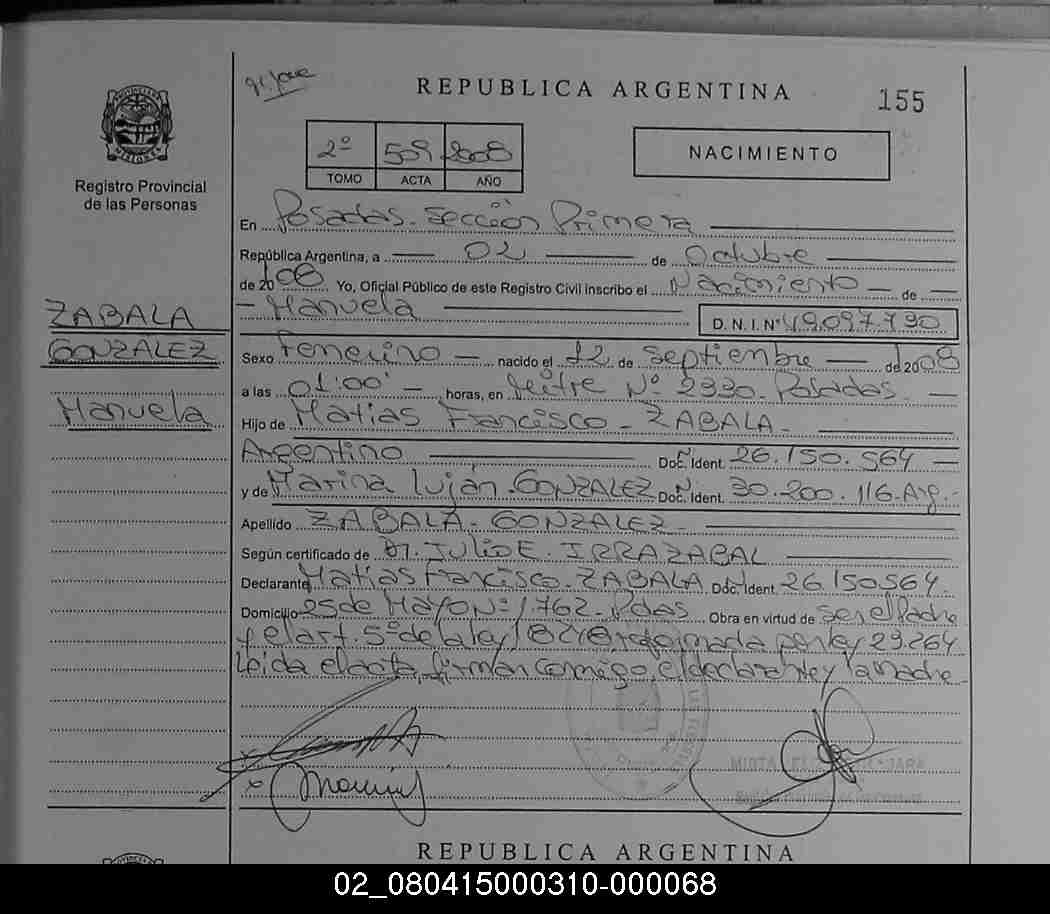 REPUBLICA ARGENTINA
155
PROVINCIA DE MISIONES
Registro Provincial
de las Personas
2º 509 2008
TOMO ACTA AÑO
NACIMIENTO
En Posadas. Sección Primera
República Argentina, a 02 de Octubre
de 2008 Yo, Oficial Público de este Registro Civil inscribo el Nacimiento de
Manuela D.N.I. Nº 49.097.790
ZABALA
GONZALEZ
Manuela
Sexo Femenino nacido el 12 de Septiembre de 2008
a las 01:00' horas, en Mitre Nº 2330. Posadas.
Hijo de Matias Francisco - ZABALA -
Argentino Doc. Ident. 26.150.564
y de Marina Luján. GONZALEZ Doc. Ident. 30.200.116. Arg.-
Apellido ZABALA - GONZALEZ
Según certificado de Dr. Julio E. IRRAZABAL
Declarante Matias Francisco. ZABALA Doc. Ident. 26.150.564.
Domicilio 25 de Mayo Nº 1.762 - Pdas Obra en virtud de ser el Padre
y el art. 5º de la ley 18248 reformada por ley 23.264
Leida el acta, firman conmigo, el declarante y la Madre -
REPUBLICA ARGENTINA
02_080415000310-000068